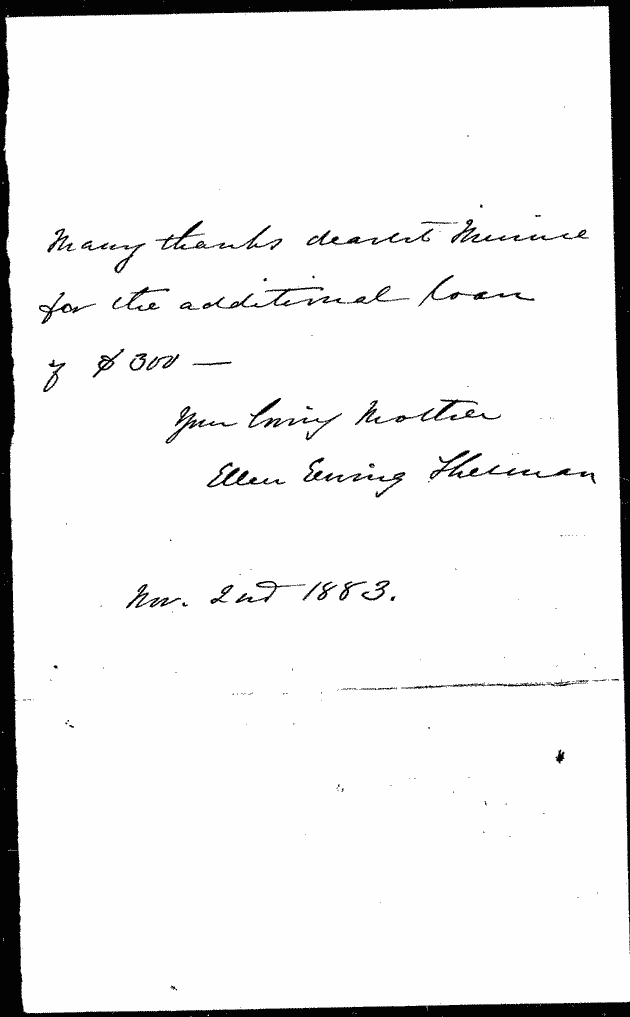 Many thanks dearest Minnie
for the additional loan
of $300 —
Your loving Mother
Ellen Ewing Sherman
Nov. 2nd 1883.